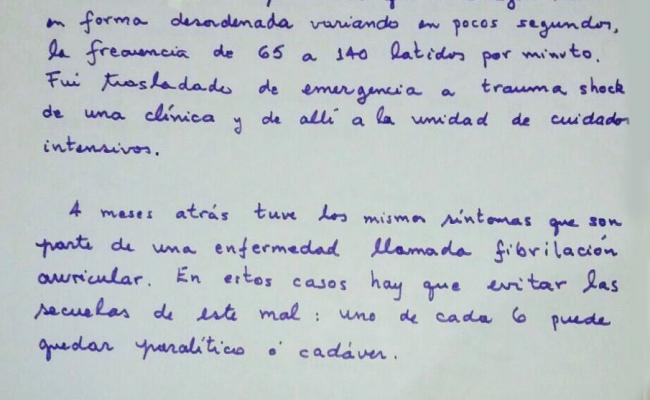 en forma desordenada variando en pocos segundos,
la frecuencia de 65 a 140 latidos por minuto.
Fui trasladado de emergencia a trauma shock
de una clínica y de allí a la unidad de cuidados
intensivos.
4 meses atrás tuve los mismos síntomas que son
parte de una enfermedad llamada fibrilación
auricular. En estos casos hay que evitar las
secuelas de este mal: uno de cada 6 puede
quedar paralítico ó cadáver.